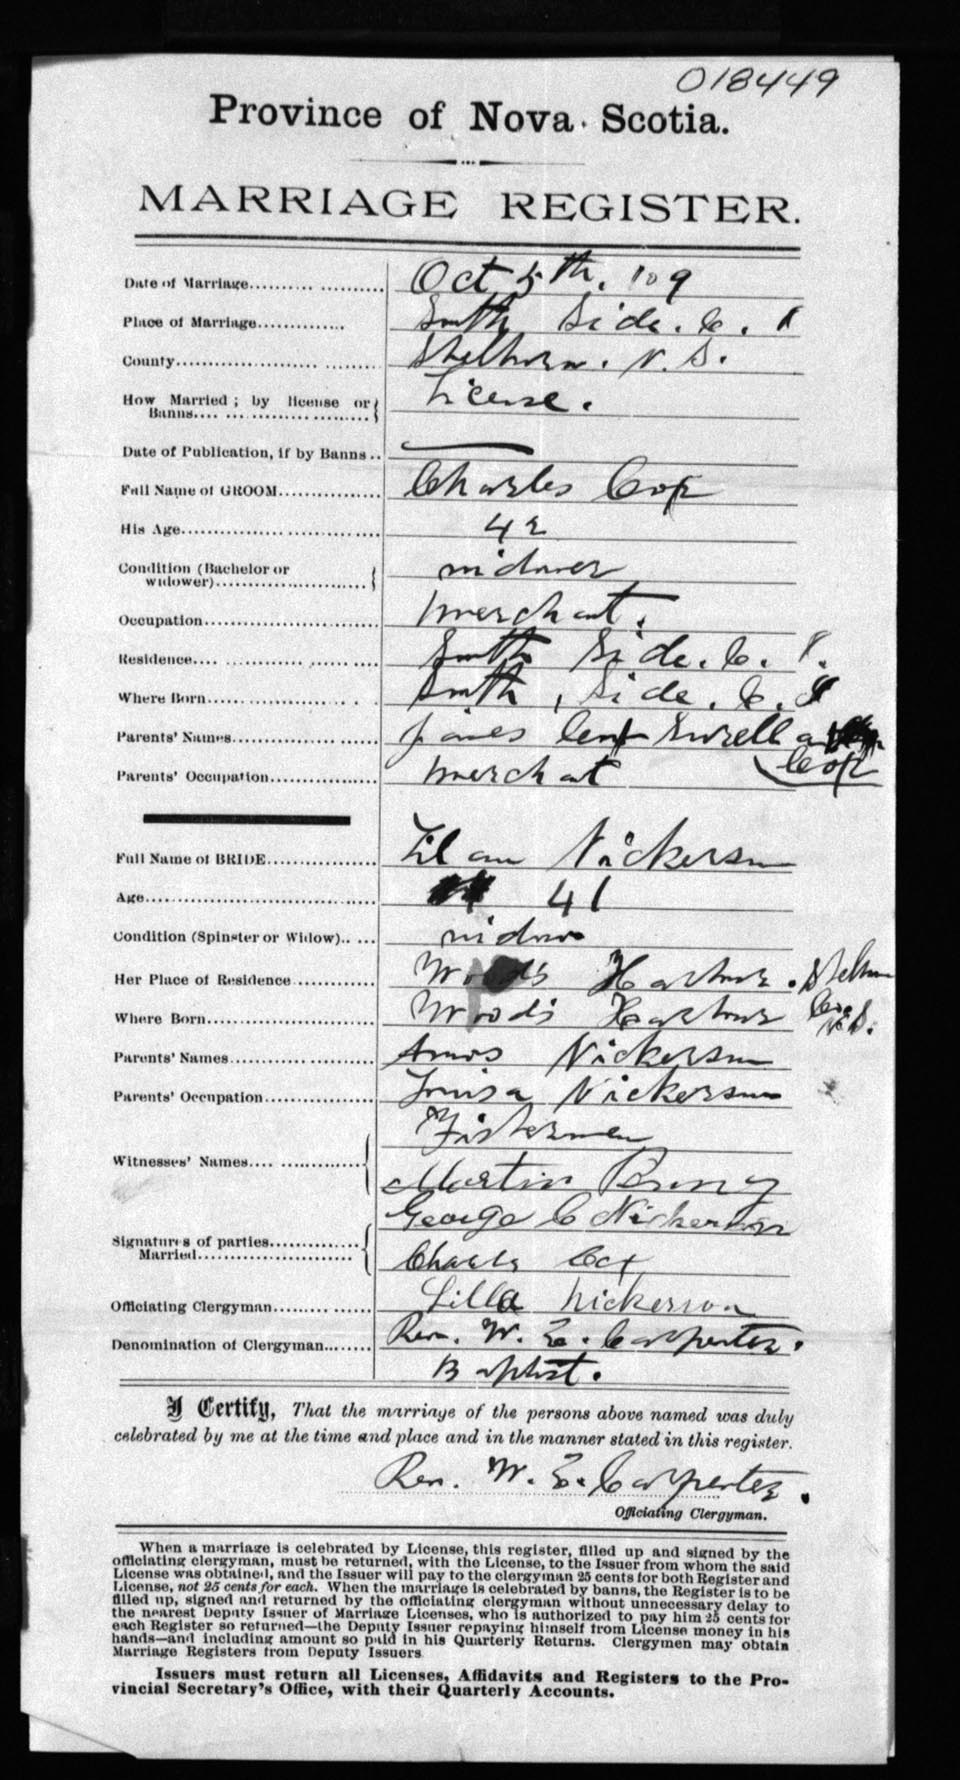 018449
Province of Nova Scotia.
MARRIAGE REGISTER.
Date of Marriage Oct 5th. 109
Place of Marriage South Side. C. I
County Shelburn. N. S.
How Married; by license or Banns License.
Date of Publication, if by Banns
Full Name of GROOM Charles Cox
His Age 42
Condition (Bachelor or widower) widower
Occupation merchant.
Residence South Side. C. I.
Where Born South, Side. C. I
Parents' Names James Cox
Cox
Parents' Occupation merchant
Full Name of BRIDE Nickerson
Age 41
Condition (Spinster or Widow) widow
Her Place of Residence Wood's Harbour. Shelburn
Co. N.S.
Where Born Wood's Harbour
Parents' Names Amos Nickerson
Parents' Occupation Louisa Nickerson
Fishermen
Witnesses' Names Martin
George C Nickerson
Signatures of parties Married Charles Cox
Officiating Clergyman Lilla Nickerson
Denomination of Clergyman Rev. W. E. Carpenter.
Baptist.
I Certify, That the marriage of the persons above named was duly
celebrated by me at the time and place and in the manner stated in this register.
Rev. W. E. Carpenter.
Officiating Clergyman.
When a marriage is celebrated by License, this register, filled up and signed by the
officiating clergyman, must be returned, with the License, to the Issuer from whom the said
License was obtained, and the Issuer will pay to the clergyman 25 cents for both Register and
License, not 25 cents for each. When the marriage is celebrated by banns, the Register is to be
filled up, signed and returned by the officiating clergyman without unnecessary delay to
the nearest Deputy Issuer of Marriage Licenses, who is authorized to pay him 25 cents for
each Register so returned—the Deputy Issuer repaying himself from License money in his
hands—and including amount so paid in his Quarterly Returns. Clergymen may obtain
Marriage Registers from Deputy Issuers
Issuers must return all Licenses, Affidavits and Registers to the Pro-
vincial Secretary's Office, with their Quarterly Accounts.